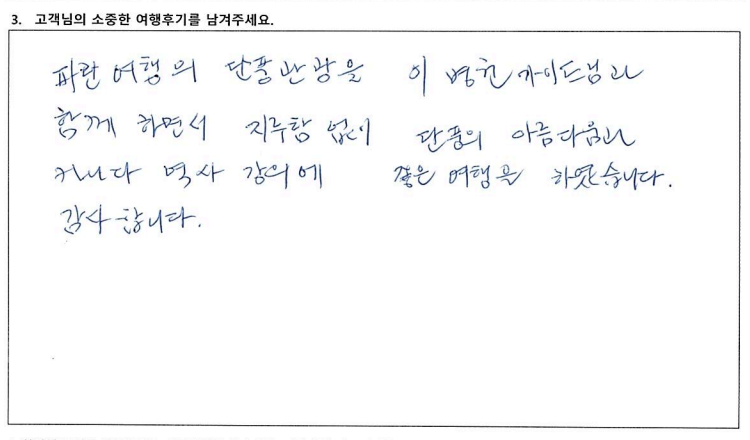 3. 고객님의 소중한 여행후기를 남겨주세요.
파란여행의 단풍관광을 이병헌 가이드님과
함께 하면서 지루함 없이 단풍의 아름다움과
캐나다 역사 강의에 좋은 여행을 하였습니다.
감사합니다.